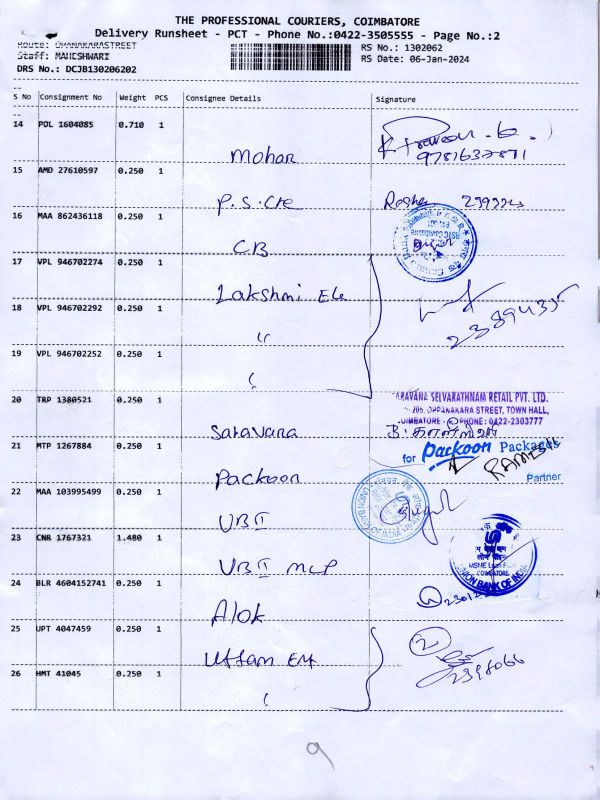 THE PROFESSIONAL COURIERS, COIMBATORE
Delivery Runsheet - PCT - Phone No.:0422-3505555 - Page No.:2
Route: OPANAKARASTREET
RS No.: 1302062
Staff: MAHESHWARI
RS Date: 06-Jan-2024
DRS No.: DCJB130206202
S No Consignment No Weight PCS Consignee Details Signature
14 POL 1604085 0.710 1 Mohan
9781637871
15 AMD 27610597 0.250 1 P.S.Cte
16 MAA 862436118 0.250 1 CB
17 VPL 946702274 0.250 1 Lakshmi Ele
18 VPL 946702292 0.250 1 "
19 VPL 946702252 0.250 1
20 TRP 1380521 0.250 1 Saravana
SARAVANA SELVARATHNAM RETAIL PVT. LTD.
205, OPPANAKARA STREET, TOWN HALL,
COIMBATORE - PHONE: 0422-2303777
21 MTP 1267884 0.250 1 Packoon
for Packoon Packages
RAMESH
Partner
22 MAA 103995499 0.250 1 UBI
23 CNR 1767321 1.480 1 UBI MLP
MSME Loan
COIMBATORE
UNION BANK OF INDIA
24 BLR 4604152741 0.250 1 Alok
25 UPT 4047459 0.250 1 Uttam Ent
2
26 HMT 41045 0.250 1
9